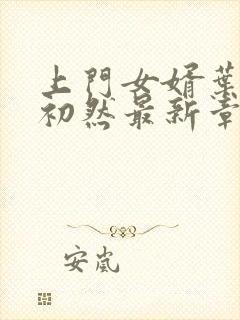 上門女婿葉
初然最新章
安嵐